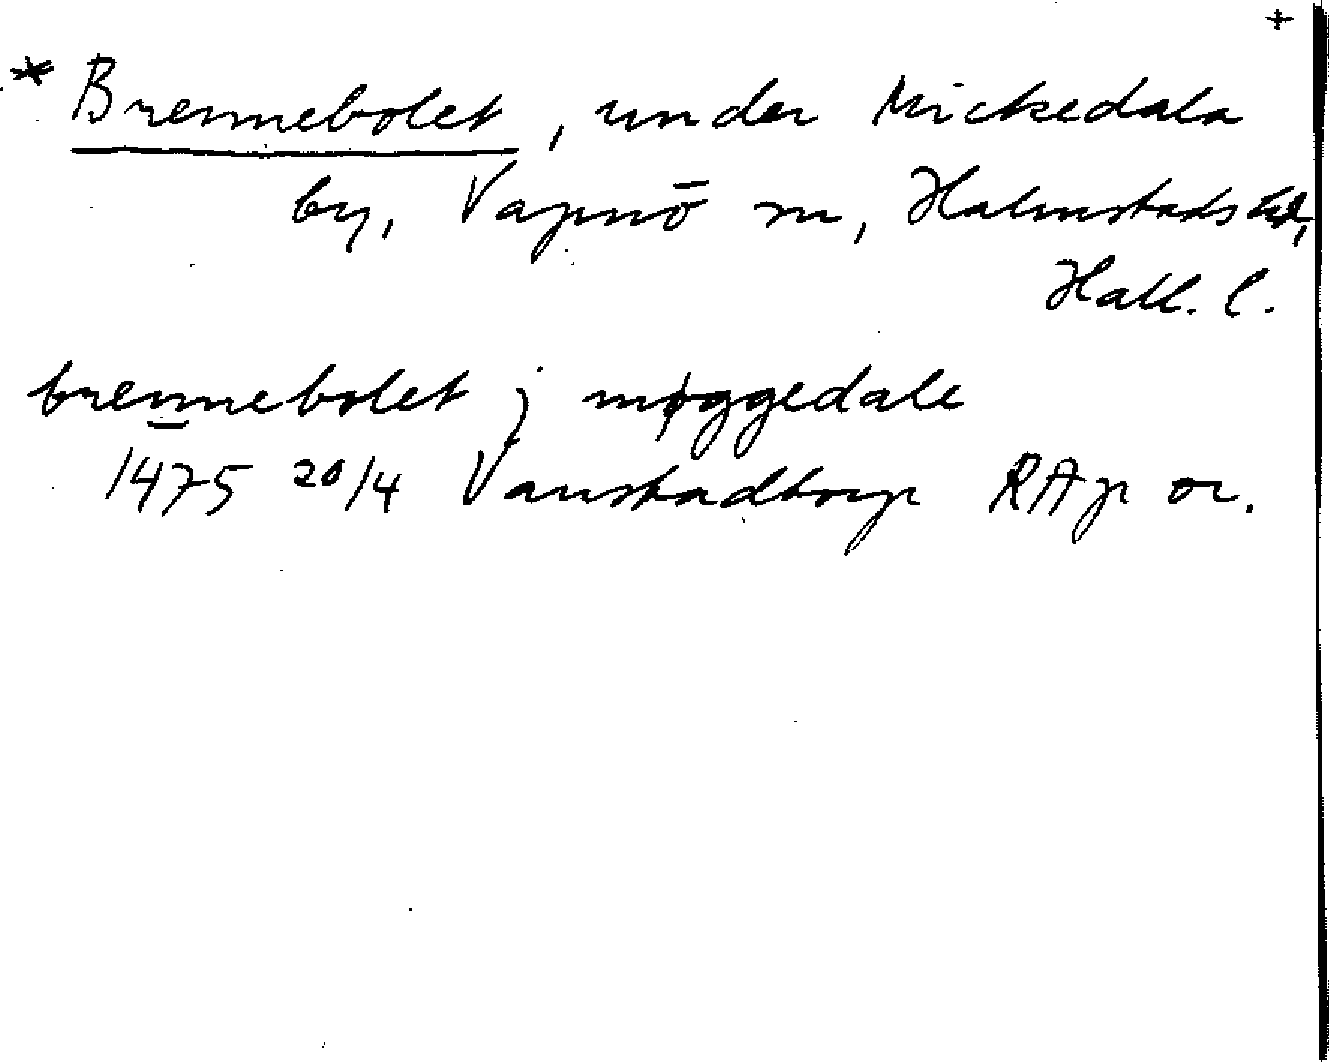 +
* Brennebolet, under Mickedala
by, Vapnö sn, Halmstads hd,
Hall. l.
brennebolet j møggedale
1475 20/4 Vanstadtorp RAp or.